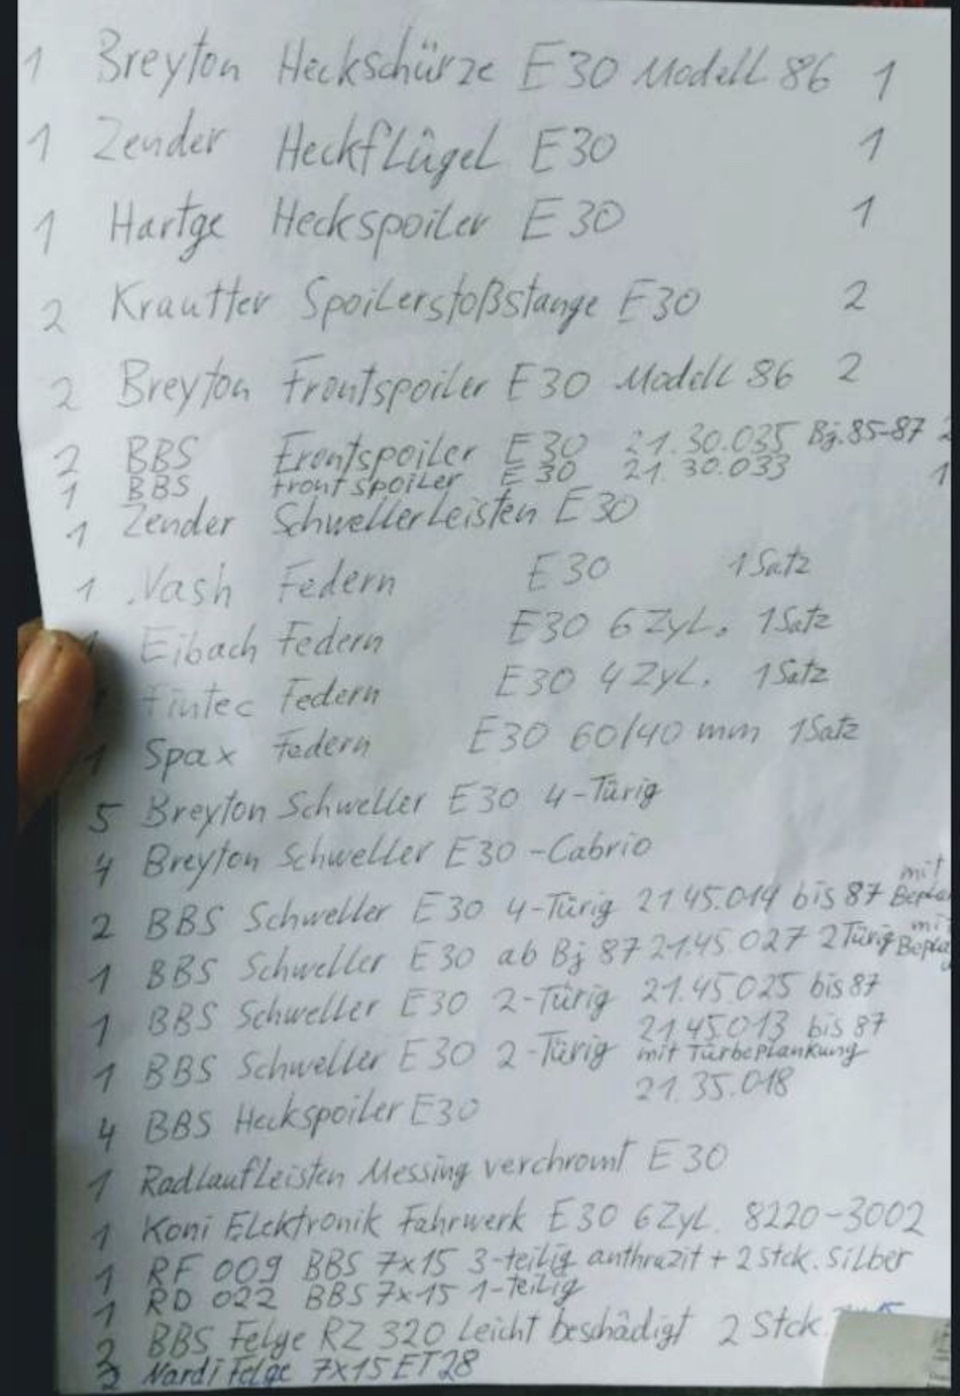 1 Breyton Heckschürze E30 Modell 86 1
1 Zender Heckflügel E30 1
1 Hartge Heckspoiler E30 1
2 Krautter Spoilerstoßstange E30 2
2 Breyton Frontspoiler E30 Modell 86 2
2 BBS Frontspoiler E30 21.30.035 Bj.85-87 2
1 BBS Frontspoiler E30 21.30.033 1
1 Zender Schwellerleisten E30
1 Vash Federn E30 1Satz
1 Eibach Federn E30 6Zyl. 1Satz
Fintec Federn E30 4Zyl. 1Satz
1 Spax Federn E30 60/40 mm 1Satz
5 Breyton Schweller E30 4-Türig
4 Breyton Schweller E30-Cabrio
mit
2 BBS Schweller E30 4-Türig 21.45.014 bis 87
1 BBS Schweller E30 ab Bj 87 21.45.027 2Türig
1 BBS Schweller E30 2-Türig 21.45.025 bis 87
21.45.013 bis 87
1 BBS Schweller E30 2-Türig mit Türbeplankung
21.35.018
4 BBS Heckspoiler E30
1 Radlaufleisten Messing verchromt E30
1 Koni Elektronik Fahrwerk E30 6Zyl. 8220-3002
1 RF 009 BBS 7x15 3-teilig anthrazit + 2 stck. silber
1 RD 022 BBS 7x15 1-teilig
2 BBS Felge RZ 320 Leicht beschädigt 2 Stck.
2 Nardi Felge 7x15 ET28